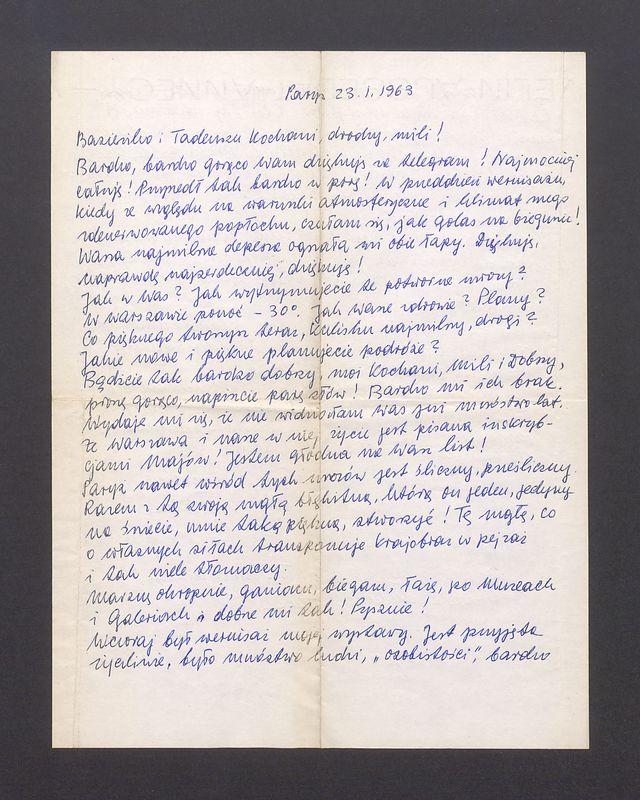 Paryż 23.1.1963
Bazieńko i Tadeuszu Kochani, drodzy, mili!
Bardzo, bardzo gorąco Wam dziękuję za telegram! Najmocniej
całuję! Przyszedł tak bardzo w porę! W przeddzień wernisażu,
kiedy ze względu na warunki atmosferyczne i klimat mego
zdenerwowanego popłochu, czułam się, jak golas na biegunie!
Wasza najmilsza depesza ogrzała mi obie łapy. Dziękuję,
naprawdę najserdeczniej, dziękuję!
Jak w Was? Jak wytrzymujecie te potworne mrozy?
W Warszawie ponoć – 30°. Jak Wasze zdrowie? Plany?
Co pięknego tworzysz teraz, najmilszy, drogi?
Jakie nowe i piękne planujecie podróże?
Bądźcie tak bardzo dobrzy, moi Kochani, Mili i Dobrzy,
proszę gorąco, napiszcie parę słów! Bardzo mi ich brak.
Wydaje mi się, że nie widziałam Was już mnóstwo lat.
Że Warszawa i nasze w niej życie jest pisana inskryp-
cjami Majów! Jestem głodna na Wasz list!
Paryż nawet wśród tych mrozów jest śliczny, prześliczny.
Razem z tą swoją mgłą błękitną, którą on jeden, jedyny
na świecie, umie taką piękną, stworzyć! Tę mgłę, co
o własnych siłach transponuje krajobraz w pejzaż
i tak wiele tłumaczy.
Marznę okropnie, ganiam, biegam, łażę, po Muzeach
i Galeriach i dobrze mi tak! Pysznie!
Wczoraj był wernisaż mojej wystawy. Jest przyjęta
życzliwie, było mnóstwo ludzi, „osobistości”, bardzo